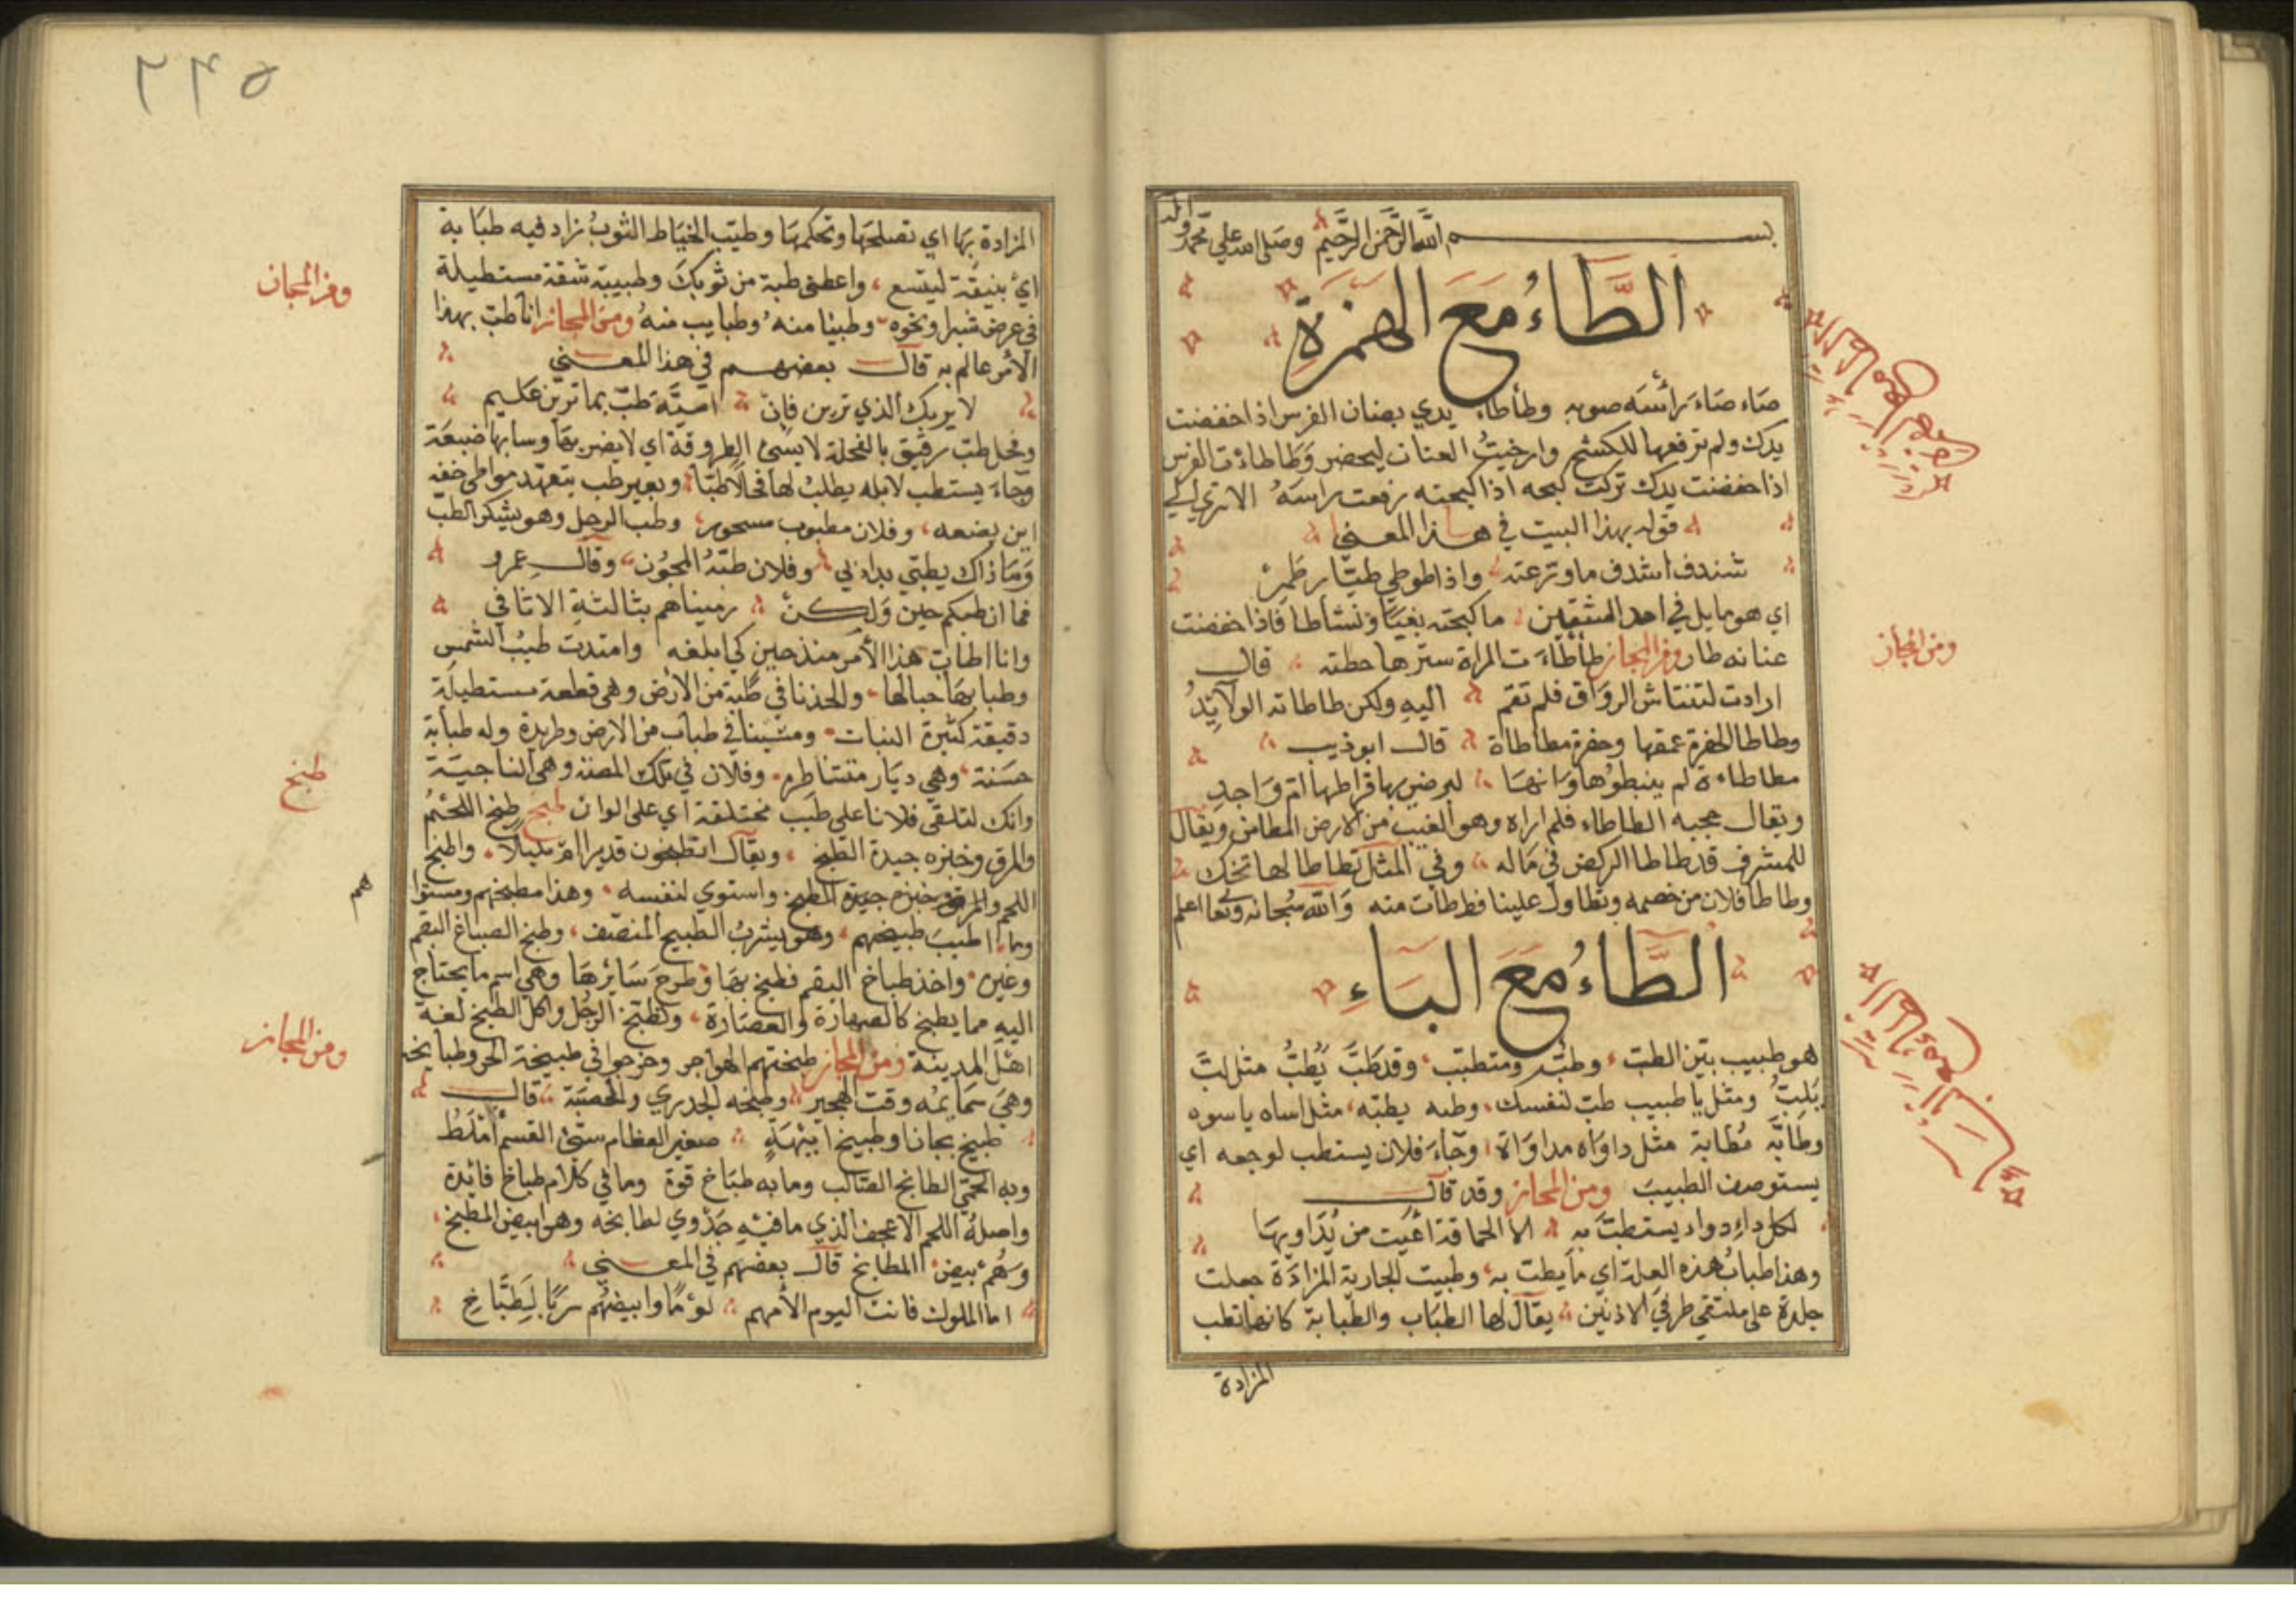 بســـــم الله الرحمن الرحيم وصلى الله على محمد واله
الطَّاءُ مَعَ الهمزةِ
صَاء صَاءَ برأسَه صوبه وطأطاء يدي بعنان الفرس اذا خفضت
يدك ولم ترفعها للكشح وارخيتُ العنان ليحضر وَطاطاءت الفرس
اذا خفضت يدك تركت كبحه اذا كبحته رفعت راسَهُ الا ترى الي
قوله بهذا البيت في هـذا المعنى
شندف اشدف ما وزعته واذا طوطي طيَّار طَمِرْ
اي هو مايل في احد الشقين ما كبحته بغيَا ونشاطا فاذا خفضت
عنانه طار ومن المجاز طأطَاءَت المراة سترها حطته قال
ارادت لتنتاش الرواق فلم تقم اليهِ ولكن طاطاته الولآيِدُ
وطاطا الحفرة عمقها وحفرة مطاطاة قال ابو ذيب
مطاطاءة لم ينبطوُها وَانهَا ليرضي بها فراطها امّ وَاجِدِ
ويقال حجبه الطاطاء فلم اراه وهو الغيب من الارض المطامن ويقال
للمسرف قد طاطا الركض في مَاله وفي المثل تطاطا لها تخطك
وطاطا فلان من خصمه وتطاول علينا فطاطات منه وَالله سُبحانه وتعا اعلم
الطَّاءُ مَعَ البَاءِ
هو طبيب بَيّن الطب وطبٌّ ومتطبّب وقد طَبَّ يَطُبُّ مثل لبَّ
يَلبُّ ومثل يا طبيب طب لنفسك وطبه يطبّه مثل اساه ياسوه
وطَابَّه مُطابة مثل داوَاه مداوَاة وجَاءَ فلان يستطب لوجعه اي
يستوصف الطبيب ومن المجاز وقد قال
لكل داءِ دواء يستطبّ به الا الحماقة اعْيَت من يُدَاويهَا
وهذا طبابُ هذه العلة اي مَا يطب به وطبيت الجارية المزادَة جعلت
جلدة على ملتقي طرفي الاذنين يقال لها الطبَاب والطبابة كانها تطب
المزادة
ومن المجاز
٢٤٥
المزادة بهَا اي تصلحهَا وتحكمهَا وطيّب الخيَاط الثوبُ زاد فيه طبَابة
ايْ بنيقَة ليتسع واعطني طبة من ثوبكَ وطبيبة شقة مستطيلة
في عرض شبرا ونخوه وطببا منه وطبايب منهُ ومن المجاز انا طب بهذا
الأمر عالم به قال بعضهـم في هذا المعـنى
لا يربك الذي ترين فان اميَّة طبّ بما ترين عَكيم
وفحل طب رقيق بالفحلة لا يسئ الطروقة اي لا يضربها وسابها ضبعَة
وجاءَ يستطب لابله يطلبُ لها فحالاً طبّا وبعير طب يتعهد مواطي خفه
اين يضعه وفلان مطبوب مسحور وطب الرجل وهو يشكر الطبّ
وَمَا ذاك يطبّي بداء بي وفلان طبّهُ المجُون وقال عمرو
فما ان طبكم جبن وَلـكنْ رميناهم بثالثةِ الاثافي
وانا اطاب هذا الأمر منذ حين كي ابلغه وامتدت طبُبُ الشمس
وطبابهَا حبالها والحذنا في طبّة من الارض وهى قطعة مستطيلة
دقيقة كثيرة النبات ومشينا في طباب من الارض وطريدة وله طبابة
حسَنة وهي ديَار متناظره وفلان في تلك الطبة وهى الناحيَة
وانك لتلقي فلانا على طبَب مختلفة اي على الوان طبخ طبخ اللحمُ
والمرق وخبزه جيدة الطبخ ويقال اتطبخون قديرا ام مليلاً واطبخ
اللحم والمرق وخبزه جيدة الطبخ واستوي لنفسه وهذا مطبخهم ومستوا
وما اطيبَ طبيخهم وهو يشربُ الطبيخ المنصّف وطبخ الصباغ البقم
وغيره واخذ طباخ البقم فطبخ بهَا وطرحَ سَايرهَا وهى اسم ما يحتاج
اليهِ مما يطبخ كالصهارة والعصَارة وطبخ الرجُل واكل الطبخ لغة
اهل المدينة ومن المجاز طبختهم الهواجر وخرجوا في طبيخة الحر وطبايخه
وهيَ سَمايمُه وقت الهجير وطبخه الجدري والحصبَة قال
طبيخ بحانا وطبيخ اميْهَةٍ صغير العظام سيّئ القسم أملَطُ
وبه الحمّي الطابخ الصالب وما به طبَاخ قوة وما في كلام طباخ فائدة
واصلهُ اللحم الاعجف الذي ما فيْهِ جَدْوي لطابخه وهو ابيض المطبخ
وَهُمْ بيض المطابخ قال بعضهم في المعـنى
اما الملوك فانت اليوم الأمهم لؤمًا وابيضهُم سربَا لِ طبَّاخ
ومن المجاز
طبخ
هم
ومن المجاز